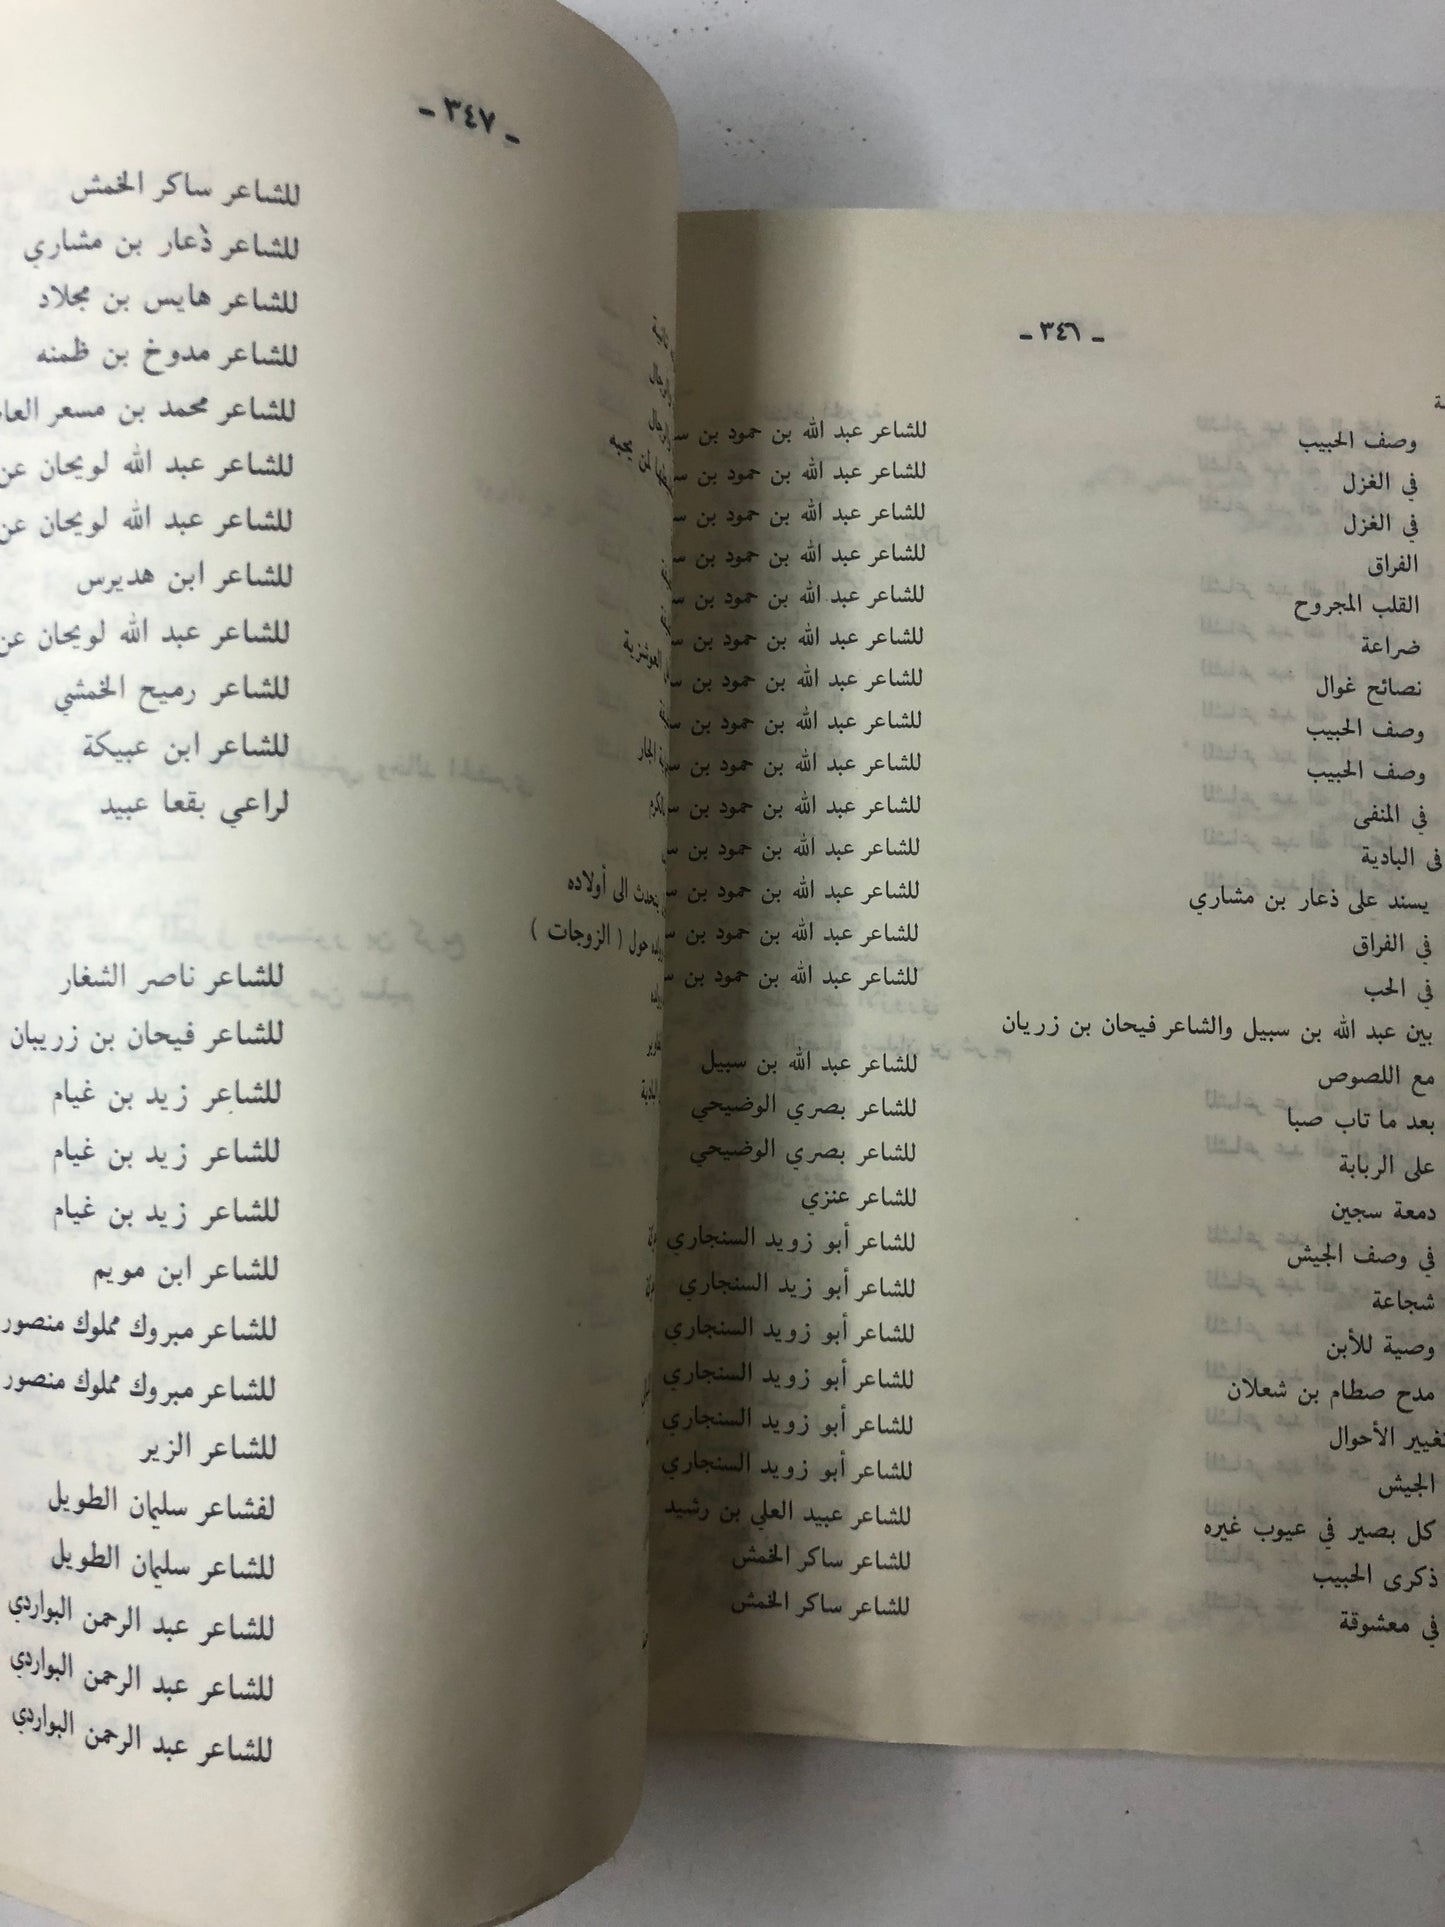 - ٣٤٦ -
وصف الحبيب للشاعر عبد الله بن حمود بن
في الغزل للشاعر عبد الله بن حمود بن
في الغزل للشاعر عبد الله بن حمود بن
الفراق للشاعر عبد الله بن حمود بن
القلب المجروح للشاعر عبد الله بن حمود بن
ضراعة للشاعر عبد الله بن حمود بن
نصائح غوال للشاعر عبد الله بن حمود بن
وصف الحبيب للشاعر عبد الله بن حمود بن
وصف الحبيب للشاعر عبد الله بن حمود بن
في المنفى للشاعر عبد الله بن حمود بن
في البادية للشاعر عبد الله بن حمود بن
يسند على ذعار بن مشاري للشاعر عبد الله بن حمود بن
في الفراق للشاعر عبد الله بن حمود بن
في الحب للشاعر عبد الله بن حمود بن
بين عبد الله بن سبيل والشاعر فيحان بن زريان
مع اللصوص للشاعر عبد الله بن سبيل
بعد ما تاب صبا للشاعر بصري الوضيحي
على الربابة للشاعر بصري الوضيحي
دمعة سجين للشاعر عنزي
في وصف الجيش للشاعر أبو زويد السنجاري
شجاعة للشاعر أبو زيد السنجاري
وصية للأبن للشاعر أبو زويد السنجاري
مدح صطام بن شعلان للشاعر أبو زويد السنجاري
تغيير الأحوال للشاعر أبو زويد السنجاري
الجيش للشاعر أبو زويد السنجاري
كل بصير في عيوب غيره للشاعر عبيد العلي بن رشيد
ذكرى الحبيب للشاعر ساكر الخمش
في معشوقة للشاعر ساكر الخمش
- ٣٤٧ -
للشاعر ساكر الخمش
للشاعر ذعار بن مشاري
للشاعر هايس بن مجلاد
للشاعر مدوخ بن ظمنه
للشاعر محمد بن مسعر
للشاعر عبد الله لويحان
للشاعر عبد الله لويحان
للشاعر ابن هديرس
للشاعر عبد الله لويحان
للشاعر رميح الخمشي
للشاعر ابن عبيكة
لراعي بقعا عبيد
يتحدث الى أولاده
حول ( الزوجات )
للشاعر ناصر الشغار
للشاعر فيحان بن زريبان
للشاعر زيد بن غيام
للشاعر زيد بن غيام
للشاعر زيد بن غيام
للشاعر ابن مويم
للشاعر مبروك مملوك منصور
للشاعر مبروك مملوك منصور
للشاعر الزير
لفشاعر سليمان الطويل
للشاعر سليمان الطويل
للشاعر عبد الرحمن البواردي
للشاعر عبد الرحمن البواردي
للشاعر عبد الرحمن البواردي